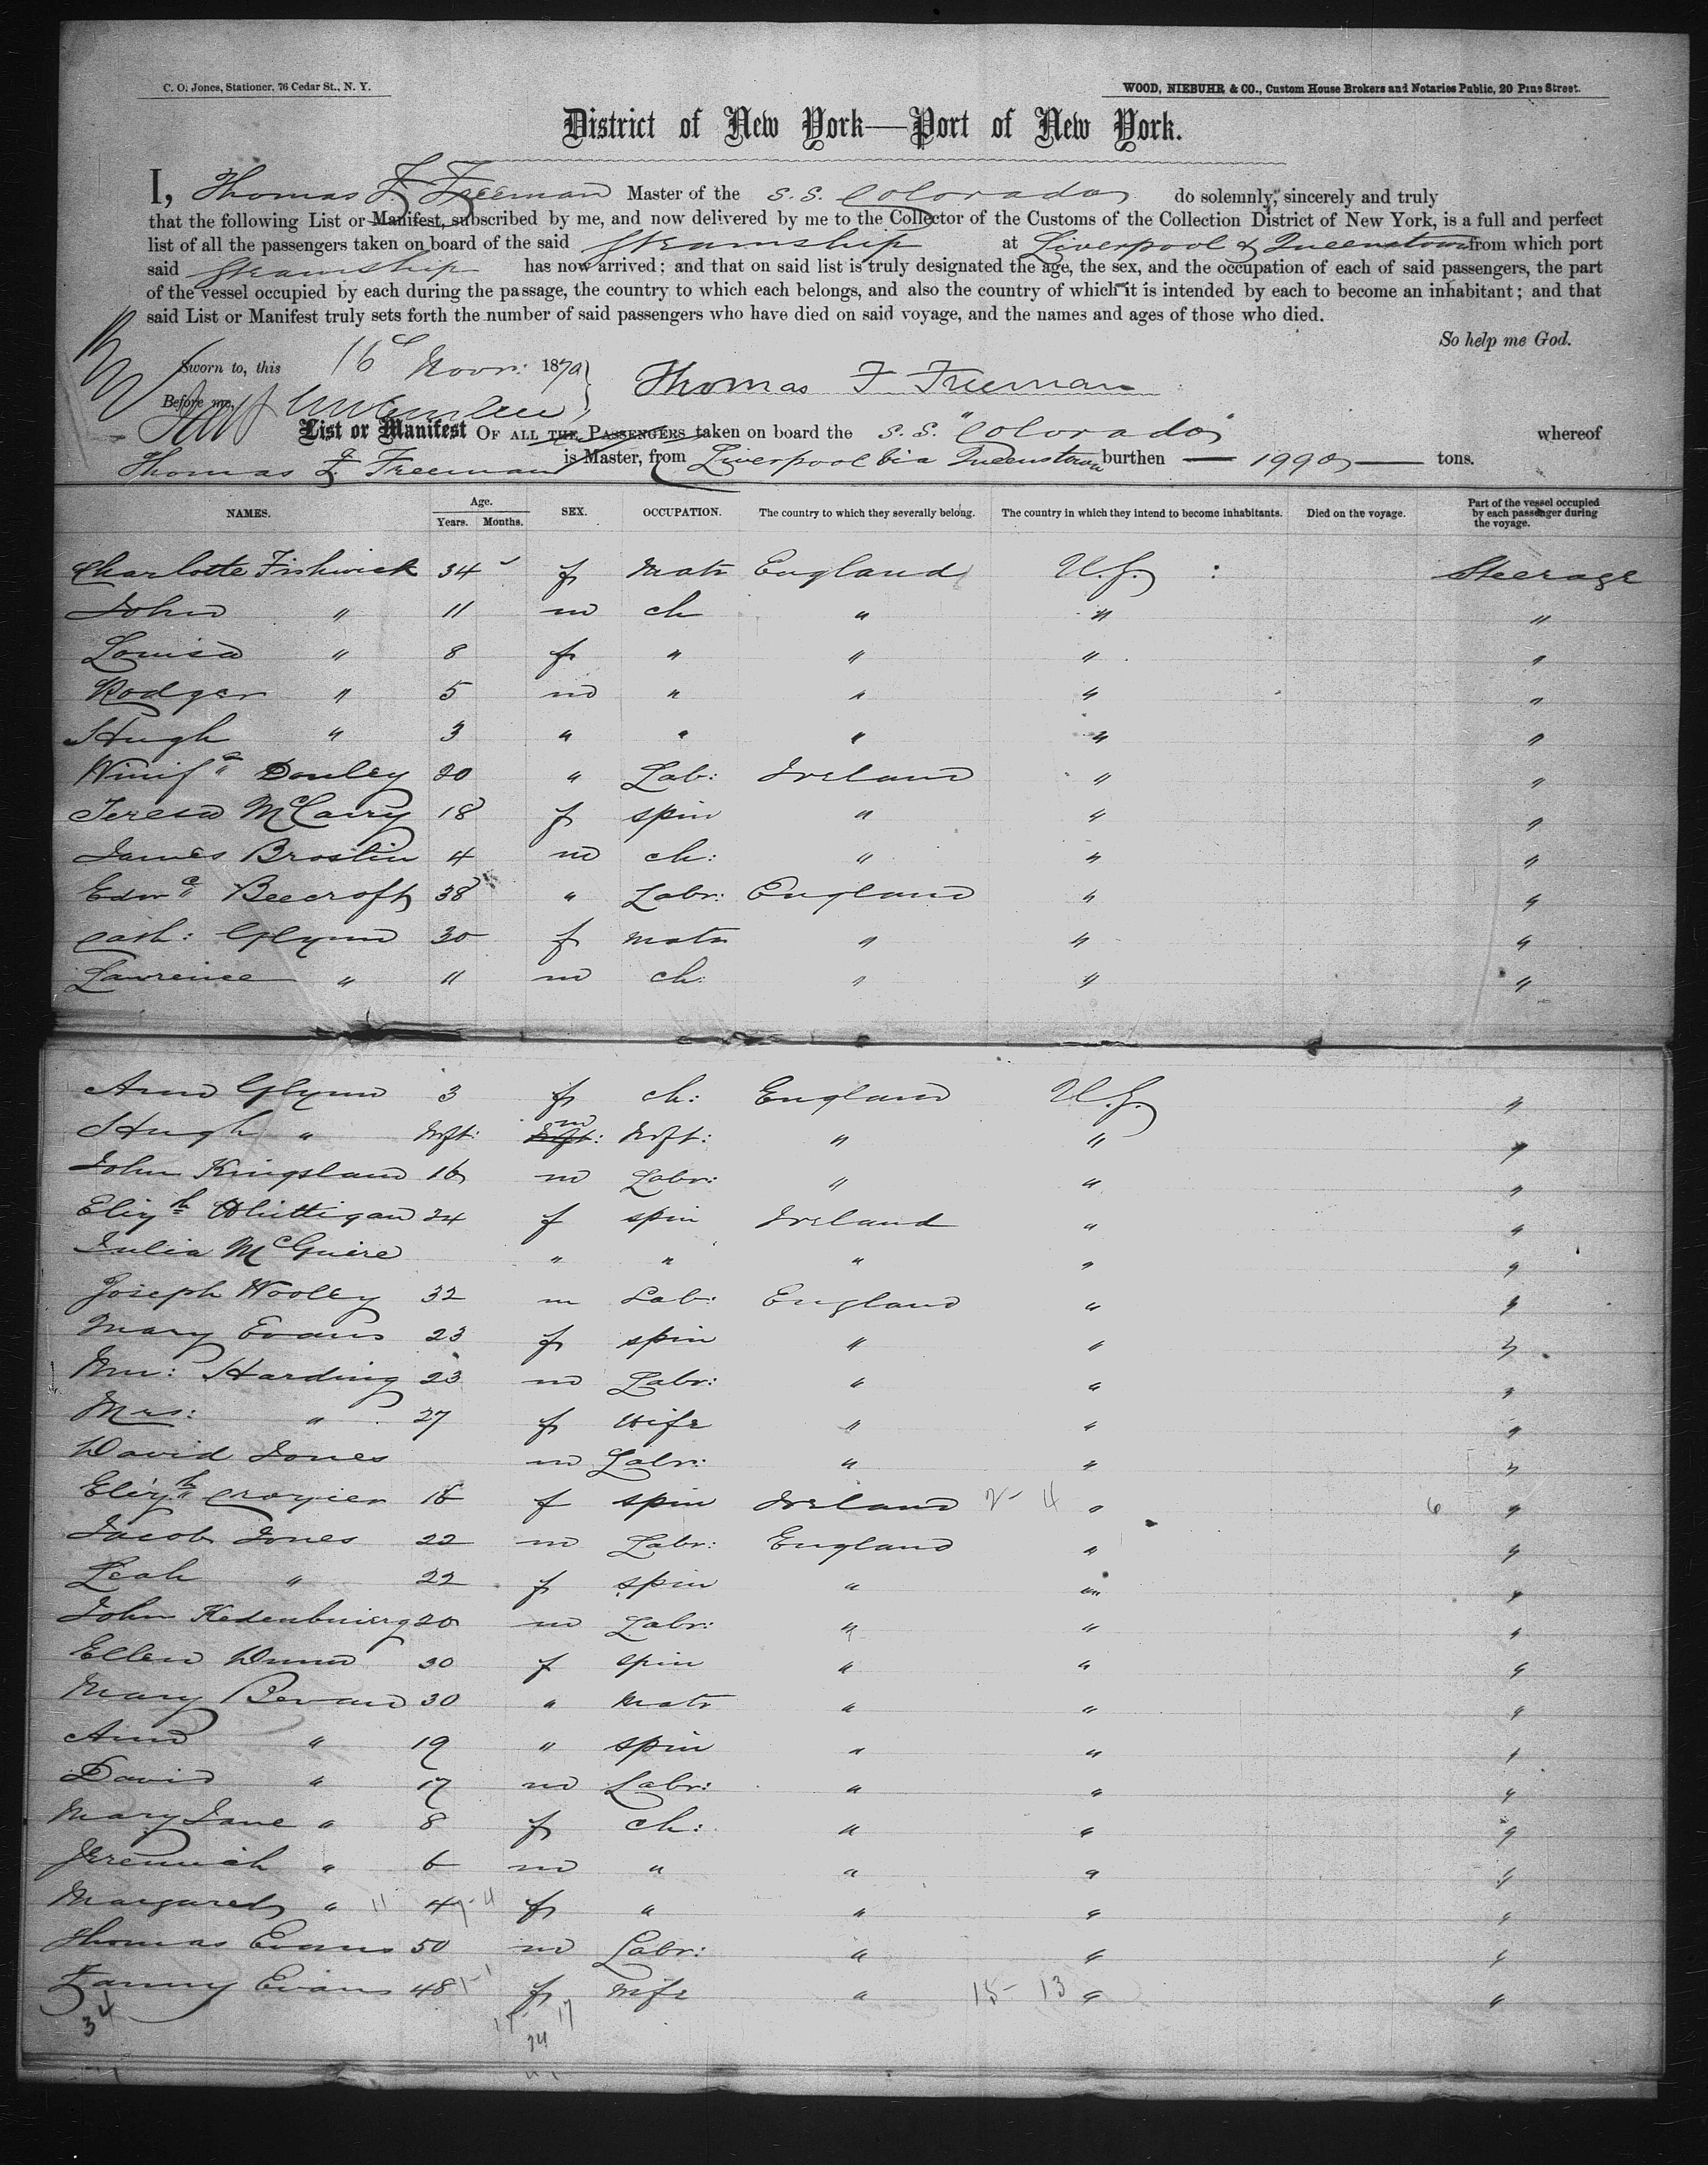 C. O. Jones, Stationer, 76 Cedar St., N. Y.
WOOD, NIEBUHR & CO., Custom House Brokers and Notaries Public, 20 Pine Street.
District of New York—Port of New York.
I, Thomas F. Freeman Master of the S.S. Colorado do solemnly, sincerely and truly
that the following List or Manifest, subscribed by me, and now delivered by me to the Collector of the Customs of the Collection District of New York, is a full and perfect
list of all the passengers taken on board of the said Steamship at Liverpool & Queenstown from which port
said Steamship has now arrived; and that on said list is truly designated the age, the sex, and the occupation of each of said passengers, the part
of the vessel occupied by each during the passage, the country to which each belongs, and also the country of which it is intended by each to become an inhabitant; and that
said List or Manifest truly sets forth the number of said passengers who have died on said voyage, and the names and ages of those who died.
So help me God.
Sworn to, this 16 Novr: 1870 Thomas F Freeman
Before me,
List or Manifest OF ALL THE PASSENGERS taken on board the S.S. "Colorado" whereof
Thomas F. Freeman is Master, from Liverpool via Queenstown burthen — 1990 — tons.
NAMES. Age. Years. Months. SEX. OCCUPATION. The country to which they severally belong. The country in which they intend to become inhabitants. Died on the voyage. Part of the vessel occupied by each passenger during the voyage.
Charlotte Fishwick 34 f Matr England U.S. Steerage
John " 11 m ch " " "
Louisa " 8 f " " " "
Rodger " 5 m " " " "
Hugh " 3 " " " " "
Winifd Donley 20 " Lab: Ireland " "
Teresa McCarry 18 f spin " " "
James Broslin 4 m ch: " " "
Edwd Beecroft 38 " Labr: England " "
Cath: Glynn 30 f Matr " " "
Lawrence " 11 m ch: " " "
Ann Glynn 3 f ch: England U.S. "
Hugh " Inft: m Inft: " " "
John Kingsland 16 m Labr: " " "
Elizth Whittigan 24 f spin Ireland " "
Julia McGuire " " " " "
Joseph Wooley 32 m Lab: England " "
Mary Evans 23 f spin " " "
Wm: Harding 23 m Labr: " " "
Mrs: " 27 f Wife " " "
David Jones m Labr: " " "
Elizth Crozier 18 f spin Ireland " "
Jacob Jones 22 m Labr: England " "
Leah " 22 f spin " " "
John 20 m Labr: " " "
Ellen Dunn 30 f spin " " "
Mary Bevan 30 " Matr " " "
Ann " 19 " spin " " "
David " 17 m Labr: " " "
Mary Jane " 8 f ch: " " "
Jeremiah " 6 m " " " "
Margaret " 4 f " " " "
Thomas Evans 50 m Labr: " " "
Fanny Evans 48 f Wife " 15- 13 " "
34